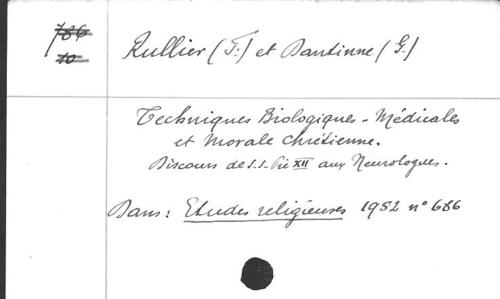 786
10
Rullier (F.) et Dantinne (G.)
Techniques Biologiques - Médicales
et Morale Chrétienne.
Discours de S.S. Pie XII aux Neurologues.
Dans : Etudes religieuses 1952 n° 686